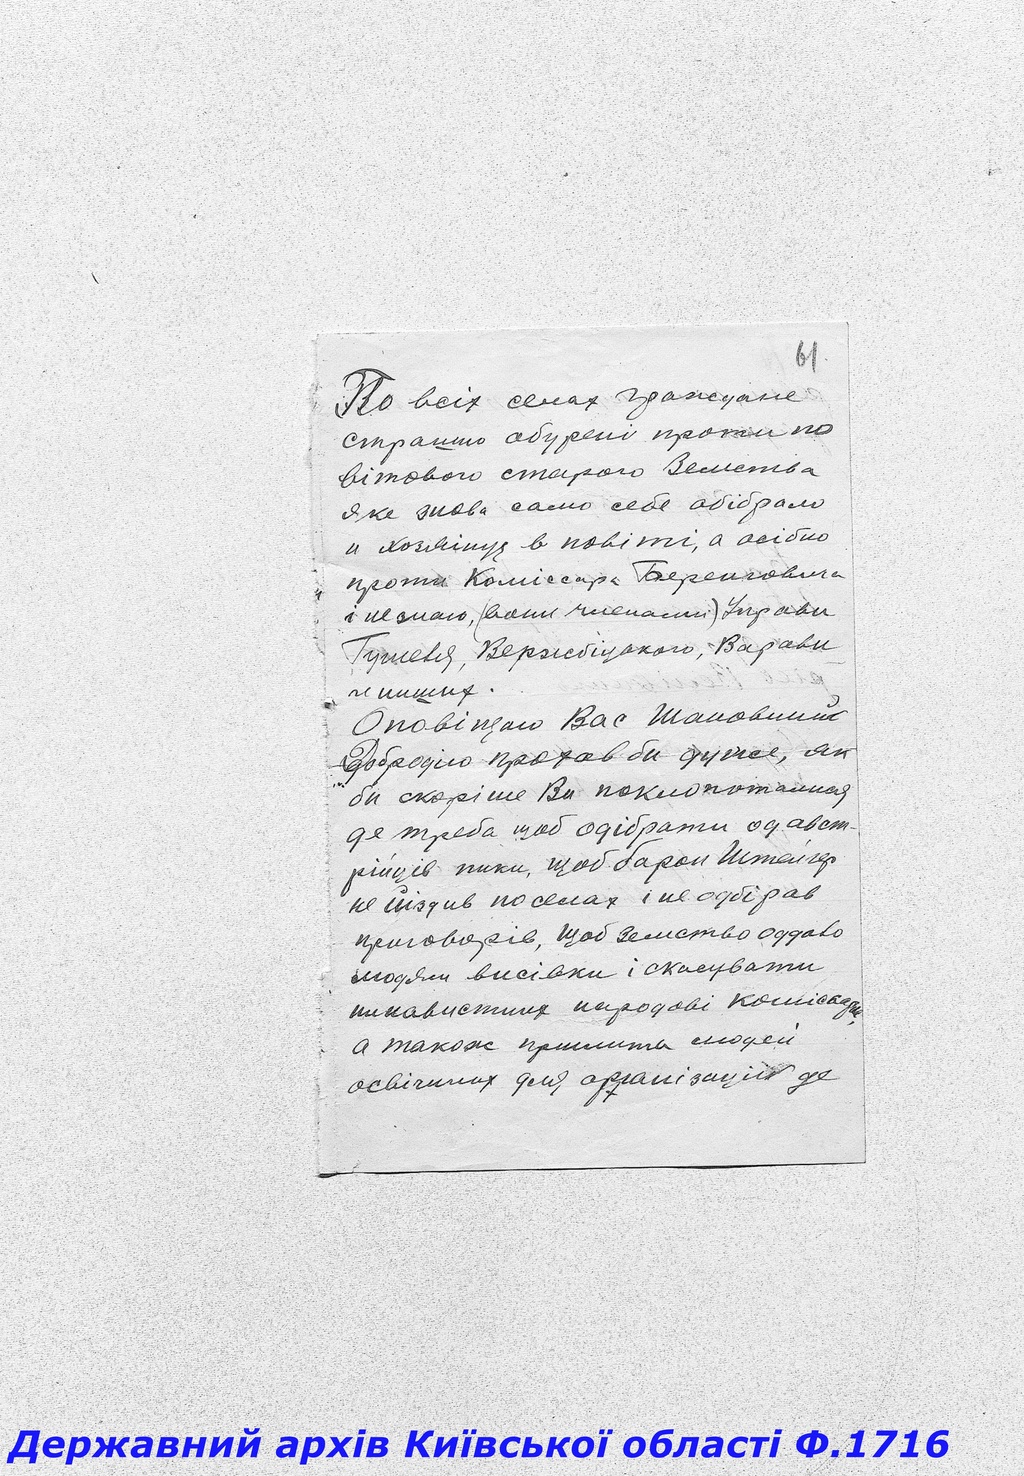 61.
По всіх селах граждане
страшно обурені проти по
вітового старого Земства
яке знова само себе обібрало
и хозяїнує в повіті, а осібно
проти Коміссара Беренговича
і не знаю, (вони членами) Управи
Гуменя, Вержбіцького, Варави
и инших.
Оповіщаю Вас Шановний
Добродію прохав би дуже, як
би скоріше Ви поклопотання
де треба щоб одібрати од авст-
рійців пики, щоб барон Штейгер
не їіздив по селах і не одбірав
приговорів, щоб Земство оддало
людям висівки і скасувати
ненавистних народові комісарів,
а також прислати людей
освічиних для організаціїй де
Державний архів Київської області Ф.1716